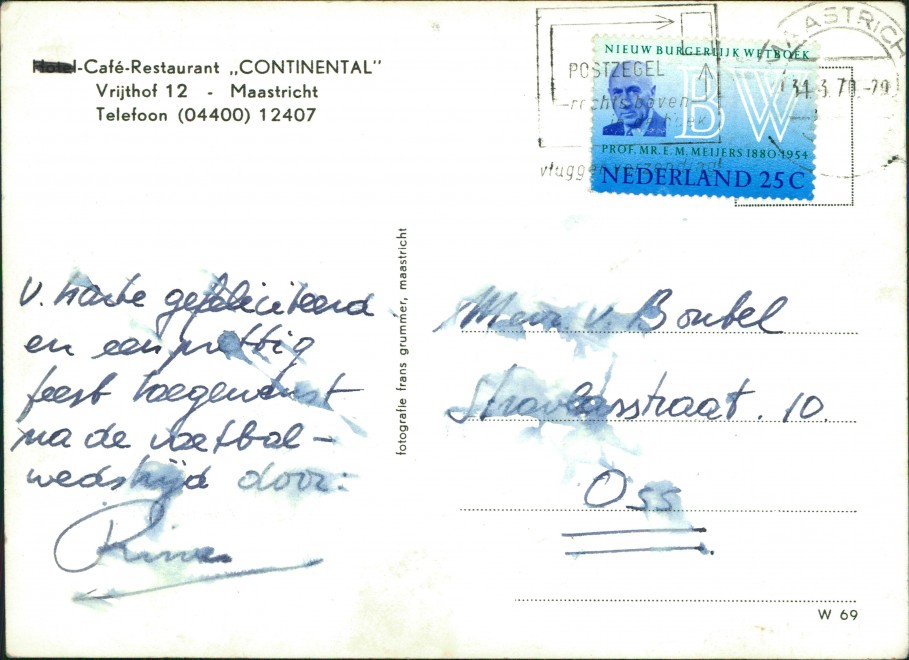 Hotel-Café-Restaurant „CONTINENTAL"
Vrijthof 12 - Maastricht
Telefoon (04400) 12407
POSTZEGEL
rechtsboven
in de hoek
vlugger
MAASTRICH
NIEUW BURGERLIJK WETBOEK
BW
PROF. MR. E. M. MEIJERS 1880-1954
NEDERLAND 25C
V. harte gefeliciteerd
en een prettig
feest toegewenst
na de voetbal-
wedstrijd door:
fotografie frans grummer, maastricht
v. Boxtel
straat. 10
Oss
W 69